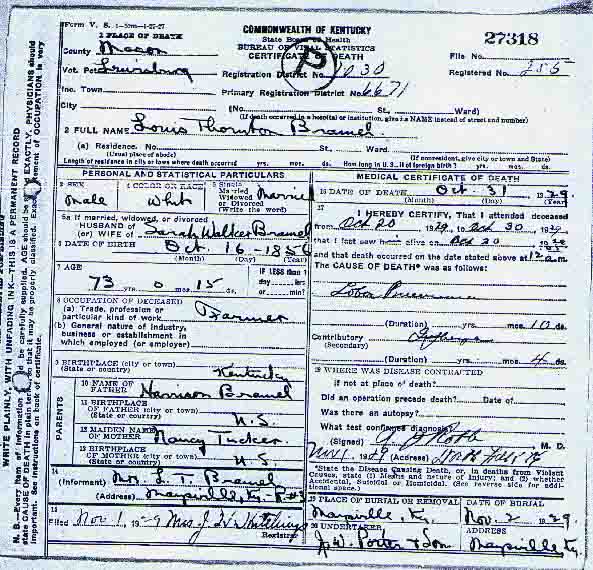 Form V. S.
COMMONWEALTH OF KENTUCKY
State Board of Health
BUREAU OF VITAL STATISTICS
CERTIFICATE OF DEATH
27318
1 PLACE OF DEATH
County Mason
Vot. Pct Lewisburg
Inc. Town
City
File No.
Registration District No. 1030
Registered No. 255
Primary Registration District No. 6671
(No. St., Ward)
(If death occurred in a hospital or institution, give its NAME instead of street and number)
2 FULL NAME Louis Thornton Bramel
(a) Residence. No. St., Ward.
(Usual place of abode) (If nonresident, give city or town and State)
Length of residence in city or town where death occurred yrs. mos. ds. How long in U. S., if of foreign birth? yrs. mos. ds.
PERSONAL AND STATISTICAL PARTICULARS
3 SEX
Male
4 COLOR OR RACE
Whit
5 Single
Married
Widowed
or Divorced
(Write the word)
Married
5a If married, widowed, or divorced
HUSBAND of
(or) WIFE of Sarah Walker Bramel
6 DATE OF BIRTH Oct. 16 - 1856
(Month) (Day) (Year)
7 AGE
73 yrs. 0 mos. 15 ds.
IF LESS than 1
day ----hrs
or ----min?
8 OCCUPATION OF DECEASED
(a) Trade, profession or
particular kind of work Farmer
(b) General nature of industry,
business or establishment in
which employed (or employer)
9 BIRTHPLACE (city or town)
(State or country) Kentucky
PARENTS
10 NAME OF
FATHER Harrison Bramel
11 BIRTHPLACE
OF FATHER (city or town)
(State or country) U. S.
12 MAIDEN NAME
OF MOTHER Nancy Tucker
13 BIRTHPLACE
OF MOTHER (city or town)
(State or country) U. S.
14
(Informant) Mrs. L. T. Bramel
(Address) Maysville, Ky. R#3
15
Filed Nov 1, 1929
Registrar
MEDICAL CERTIFICATE OF DEATH
16 DATE OF DEATH Oct 31 1929
(Month) (Day) (Year)
17
I HEREBY CERTIFY, That I attended deceased
from Oct 20 1929, to Oct 30 1929
that I last saw h alive on Oct 30
and that death occurred on the date stated above at 12 a m.
The CAUSE OF DEATH* was as follows:
Lobar Pneumonia
(Duration) yrs. mos. 10 ds.
Contributory
(Secondary)
(Duration) yrs. mos. 4 ds.
18 WHERE WAS DISEASE CONTRACTED
if not at place of death?
Did an operation precede death? Date of
Was there an autopsy?
What test confirmed diagnosis?
(Signed) M. D.
Nov 1, 1929 (Address)
*State the Disease Causing Death, or, in deaths from Violent
Causes, state (1) Means and nature of Injury; and (2) whether
Accidental, Suicidal or Homicidal. (See reverse side for addi-
tional space.)
19 PLACE OF BURIAL OR REMOVAL
Maysville, Ky.
DATE OF BURIAL
Nov. 2 1929.
20 UNDERTAKER
J. W. Porter & Son
ADDRESS
Maysville Ky
WRITE PLAINLY, WITH UNFADING INK—THIS IS A PERMANENT RECORD